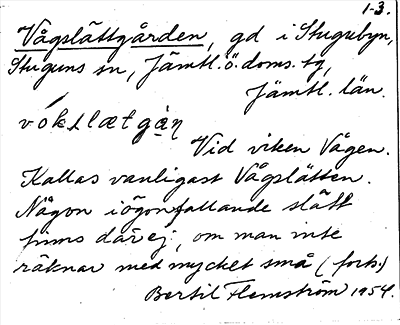 1-3.
Vågslättgården, gd i Stugubyn,
Stuguns sn, Jämtl. ö. doms. tg,
Jämtl. län.
vókslætgàṇ
Vid viken Vågen.
Kallas vanligast Vågslätten.
Någon i ögonfallande slätt
finns där ej, om man inte
räknar med mycket små (forts.)
Bertil Flemström 1954.